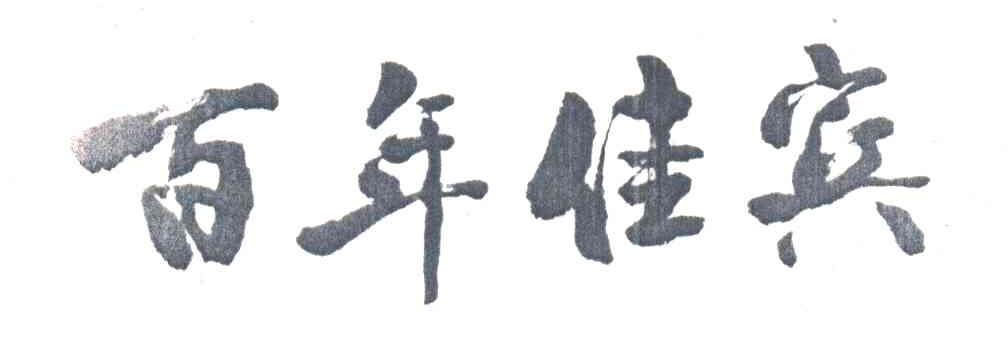 百年佳宾